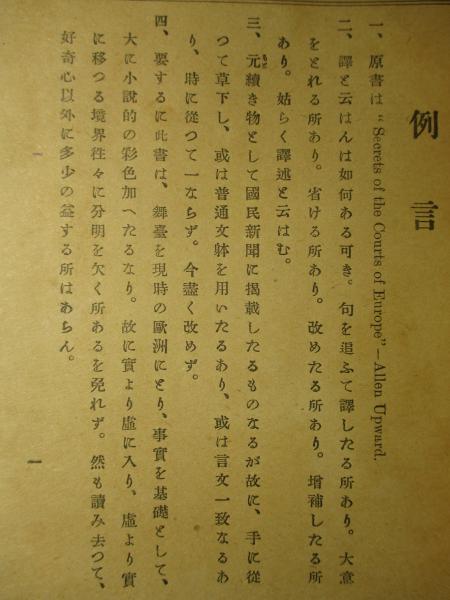 例言
一、原書は“Secrets of the Courts of Europe”—Allen Upward.
二、譯と云はんは如何ある可き。句を追ふて譯したる所あり。大意
をとれる所あり。省ける所あり。改めたる所あり。增補したる所
あり。姑らく譯述と云はむ。
三、元續き物として國民新聞に揭載したるものなるが故に、手に從
つて草下し、或は普通文躰を用いたるあり、或は言文一致なるあ
り、時に從つて一ならず。今盡く改めず。
四、要するに此書は、舞臺を現時の歐洲にとり、事實を基礎として、
大に小說的の彩色加へたるなり。故に實より虛に入り、虛より實
に移つる境界徃々に分明を欠く所あるを免れず。然も讀み去つて、
好奇心以外に多少の益する所はあらん。
一